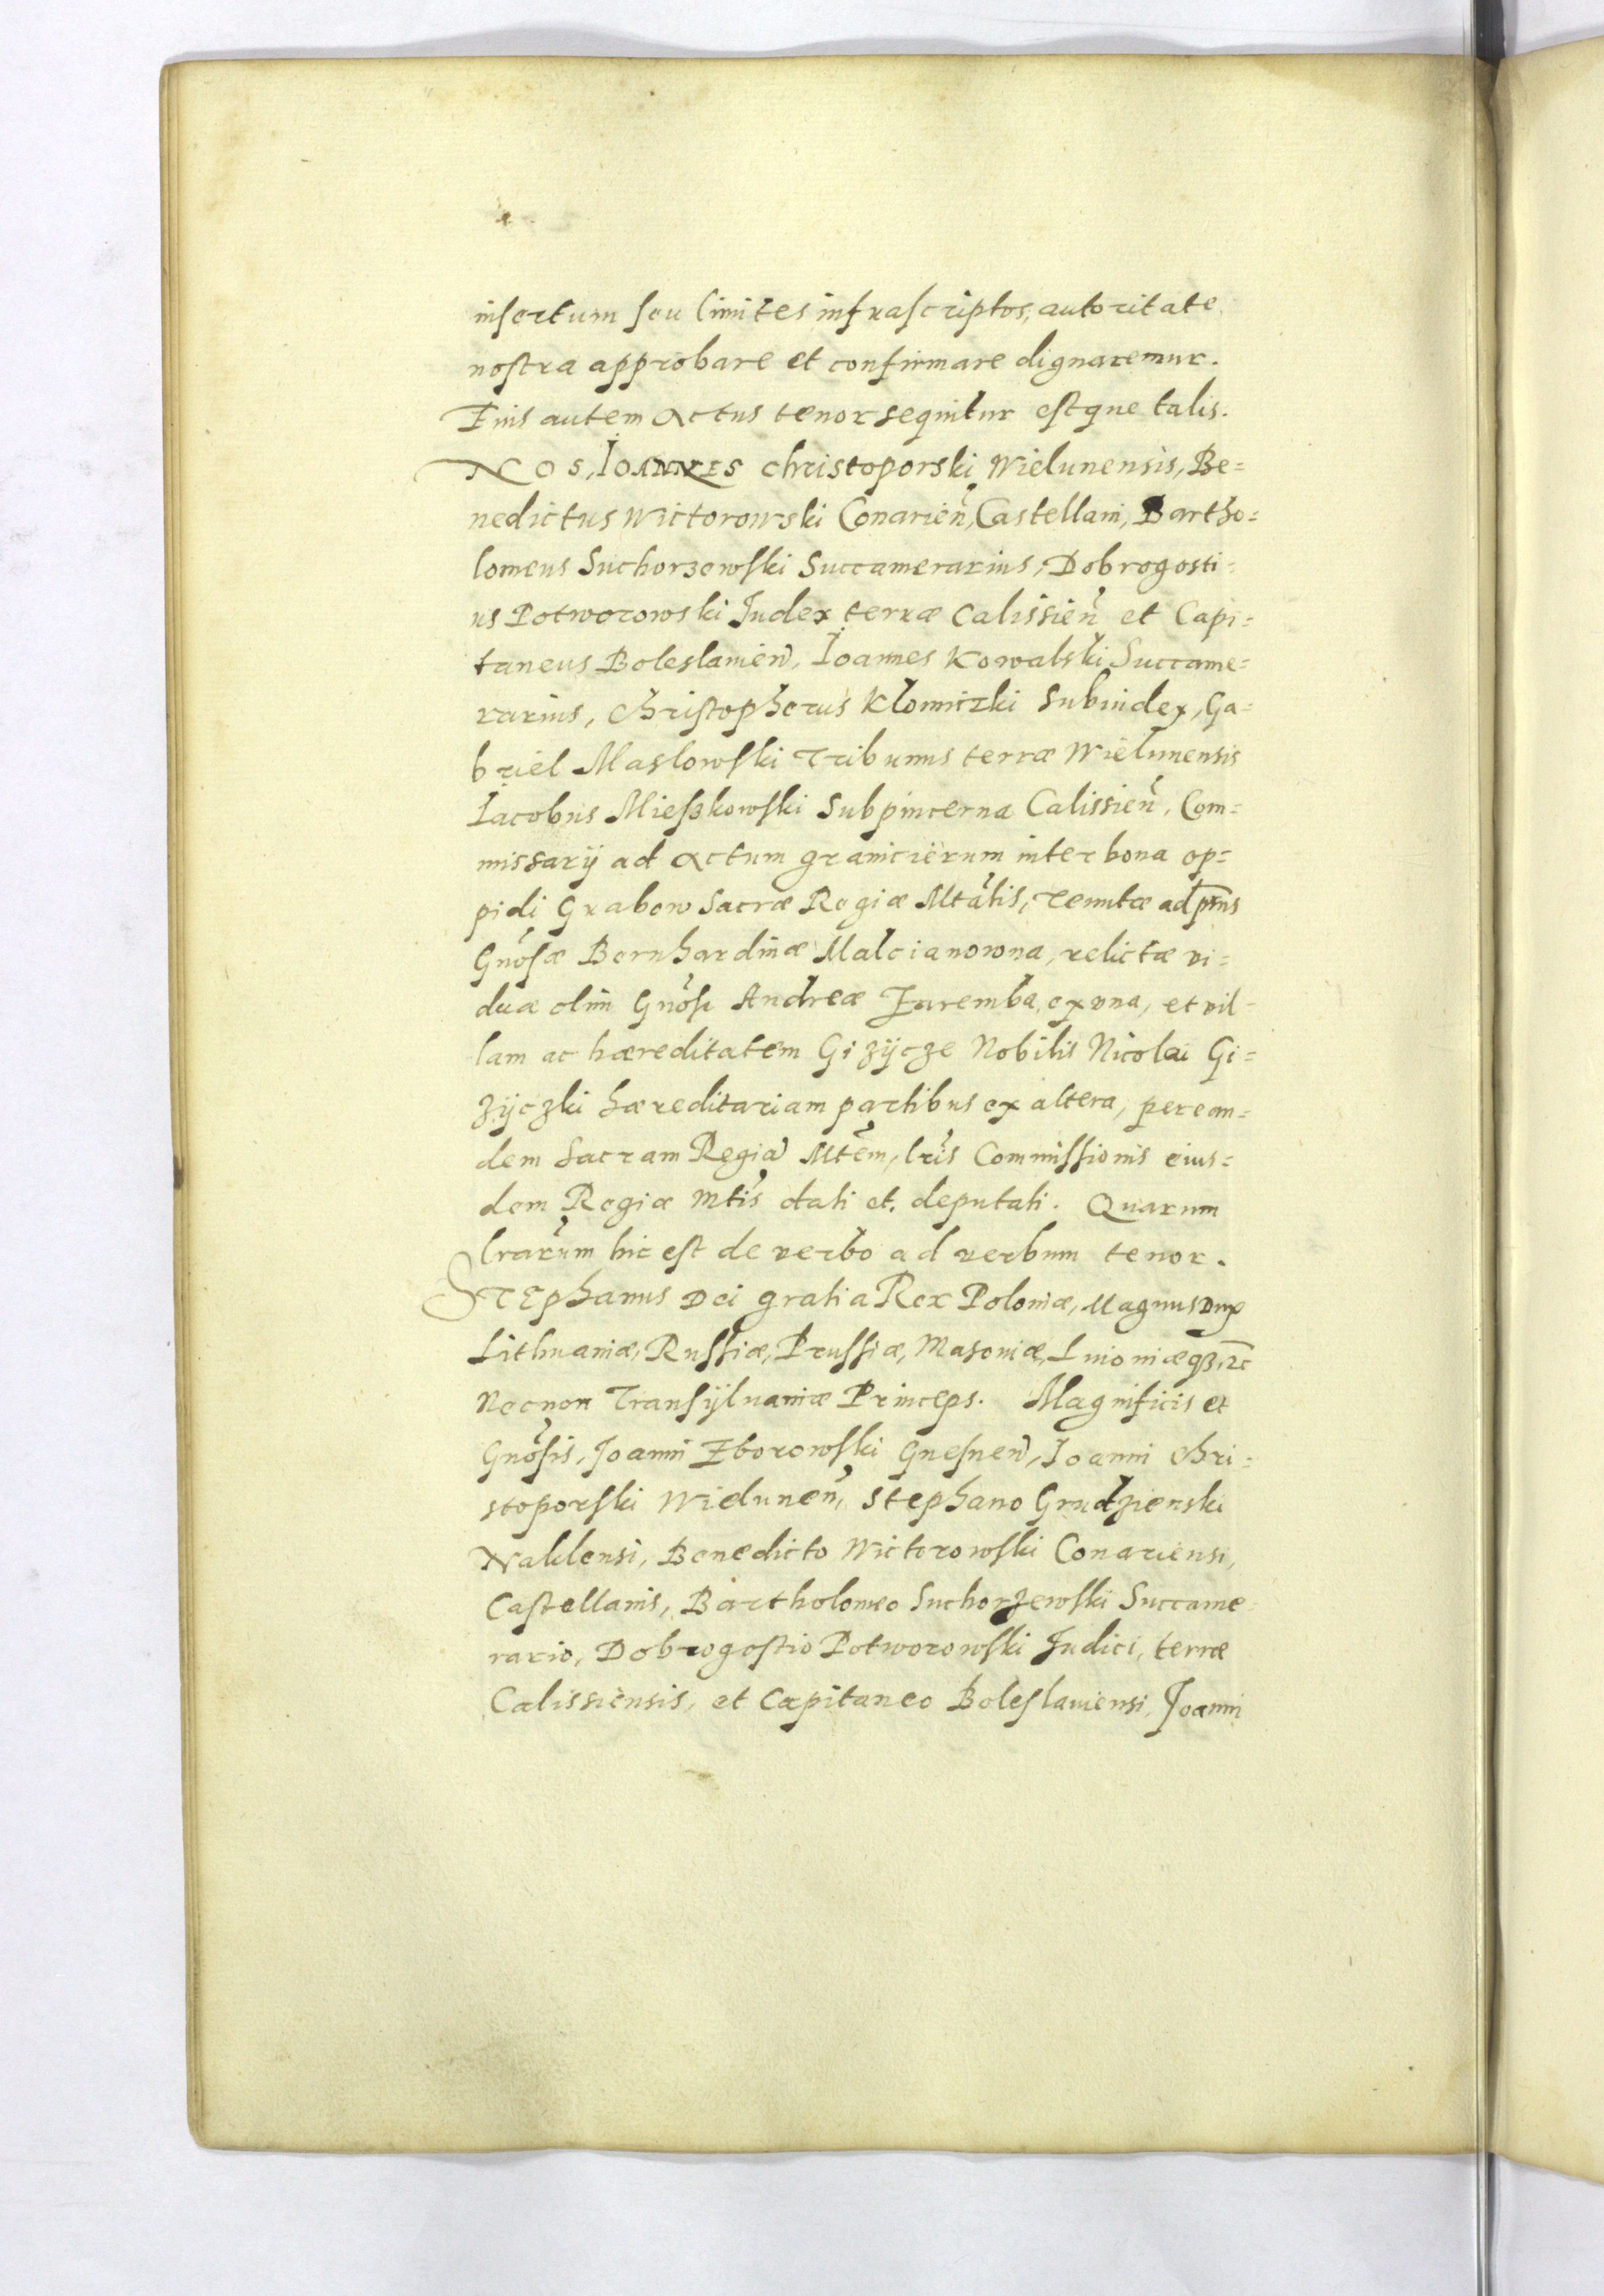 insertum seu limites infrascriptos, autoritate
nostra approbare et confirmare dignaremur.
Eius autem actus tenor sequitur estque talis.
NOS, IOANNES Christoporski Wielunensis, Be=
nedictus Wictorowski Conarien̄, Castellani, Bartho=
lomeus Suchorzewski Succamerarius, Dobrogosti=
us Potworowski Iudex terræ Calissien̄ et Capi=
taneus Boleslauien̄, Ioannes Kowalski Succame=
rarius, Christophorus Klomiczki Subiudex, Ga=
briel Maslowski Tribunus terræ Wielunensis
Iacobus Mieszkowski Subpincerna Calissien̄, Com=
missarij ad actum granicierum inter bona op=
pidi Grabow Sacræ Regiæ Mtātis, tenutæ ad p̄ns
Gnōsæ Bernhardinæ Malcianowna, relictæ vi=
duæ olim Gnōsi Andreæ Zaremba, ex vna, et vil=
lam ac hæreditatem Gizijcze Nobilis Nicolai Gi=
zijczki hæreditariam partibus ex altera, per ean=
dem Sacram Regiā Mtēm, lrīs Commissionis eius=
dem Regiæ Mtīs dati et deputati. Quarum
lrarūm hic est de verbo ad verbum tenor.
STEphanus Dei gratia Rex Poloniæ, Magnus Dux
Lithuaniæ, Russiæ, Prussiæ, Masouiæ, Liuoniæqȝ, ꝛc
Necnon Transijluaniæ Princeps. Magnificis et
Gnōsis, Joanni Zborowski Gnesnen̄, Ioanni Chri=
stoporski Wielunen̄, Stephano Grudzienski
Naklensi, Benedicto Wictorowski Conariensi,
Castellanis, Bartholomeo Suchorzewski Succame
rario, Dobrogostio Potworowski Iudici, terræ
Calissiensis, et Capitaneo Boleslauiensi, Joanni